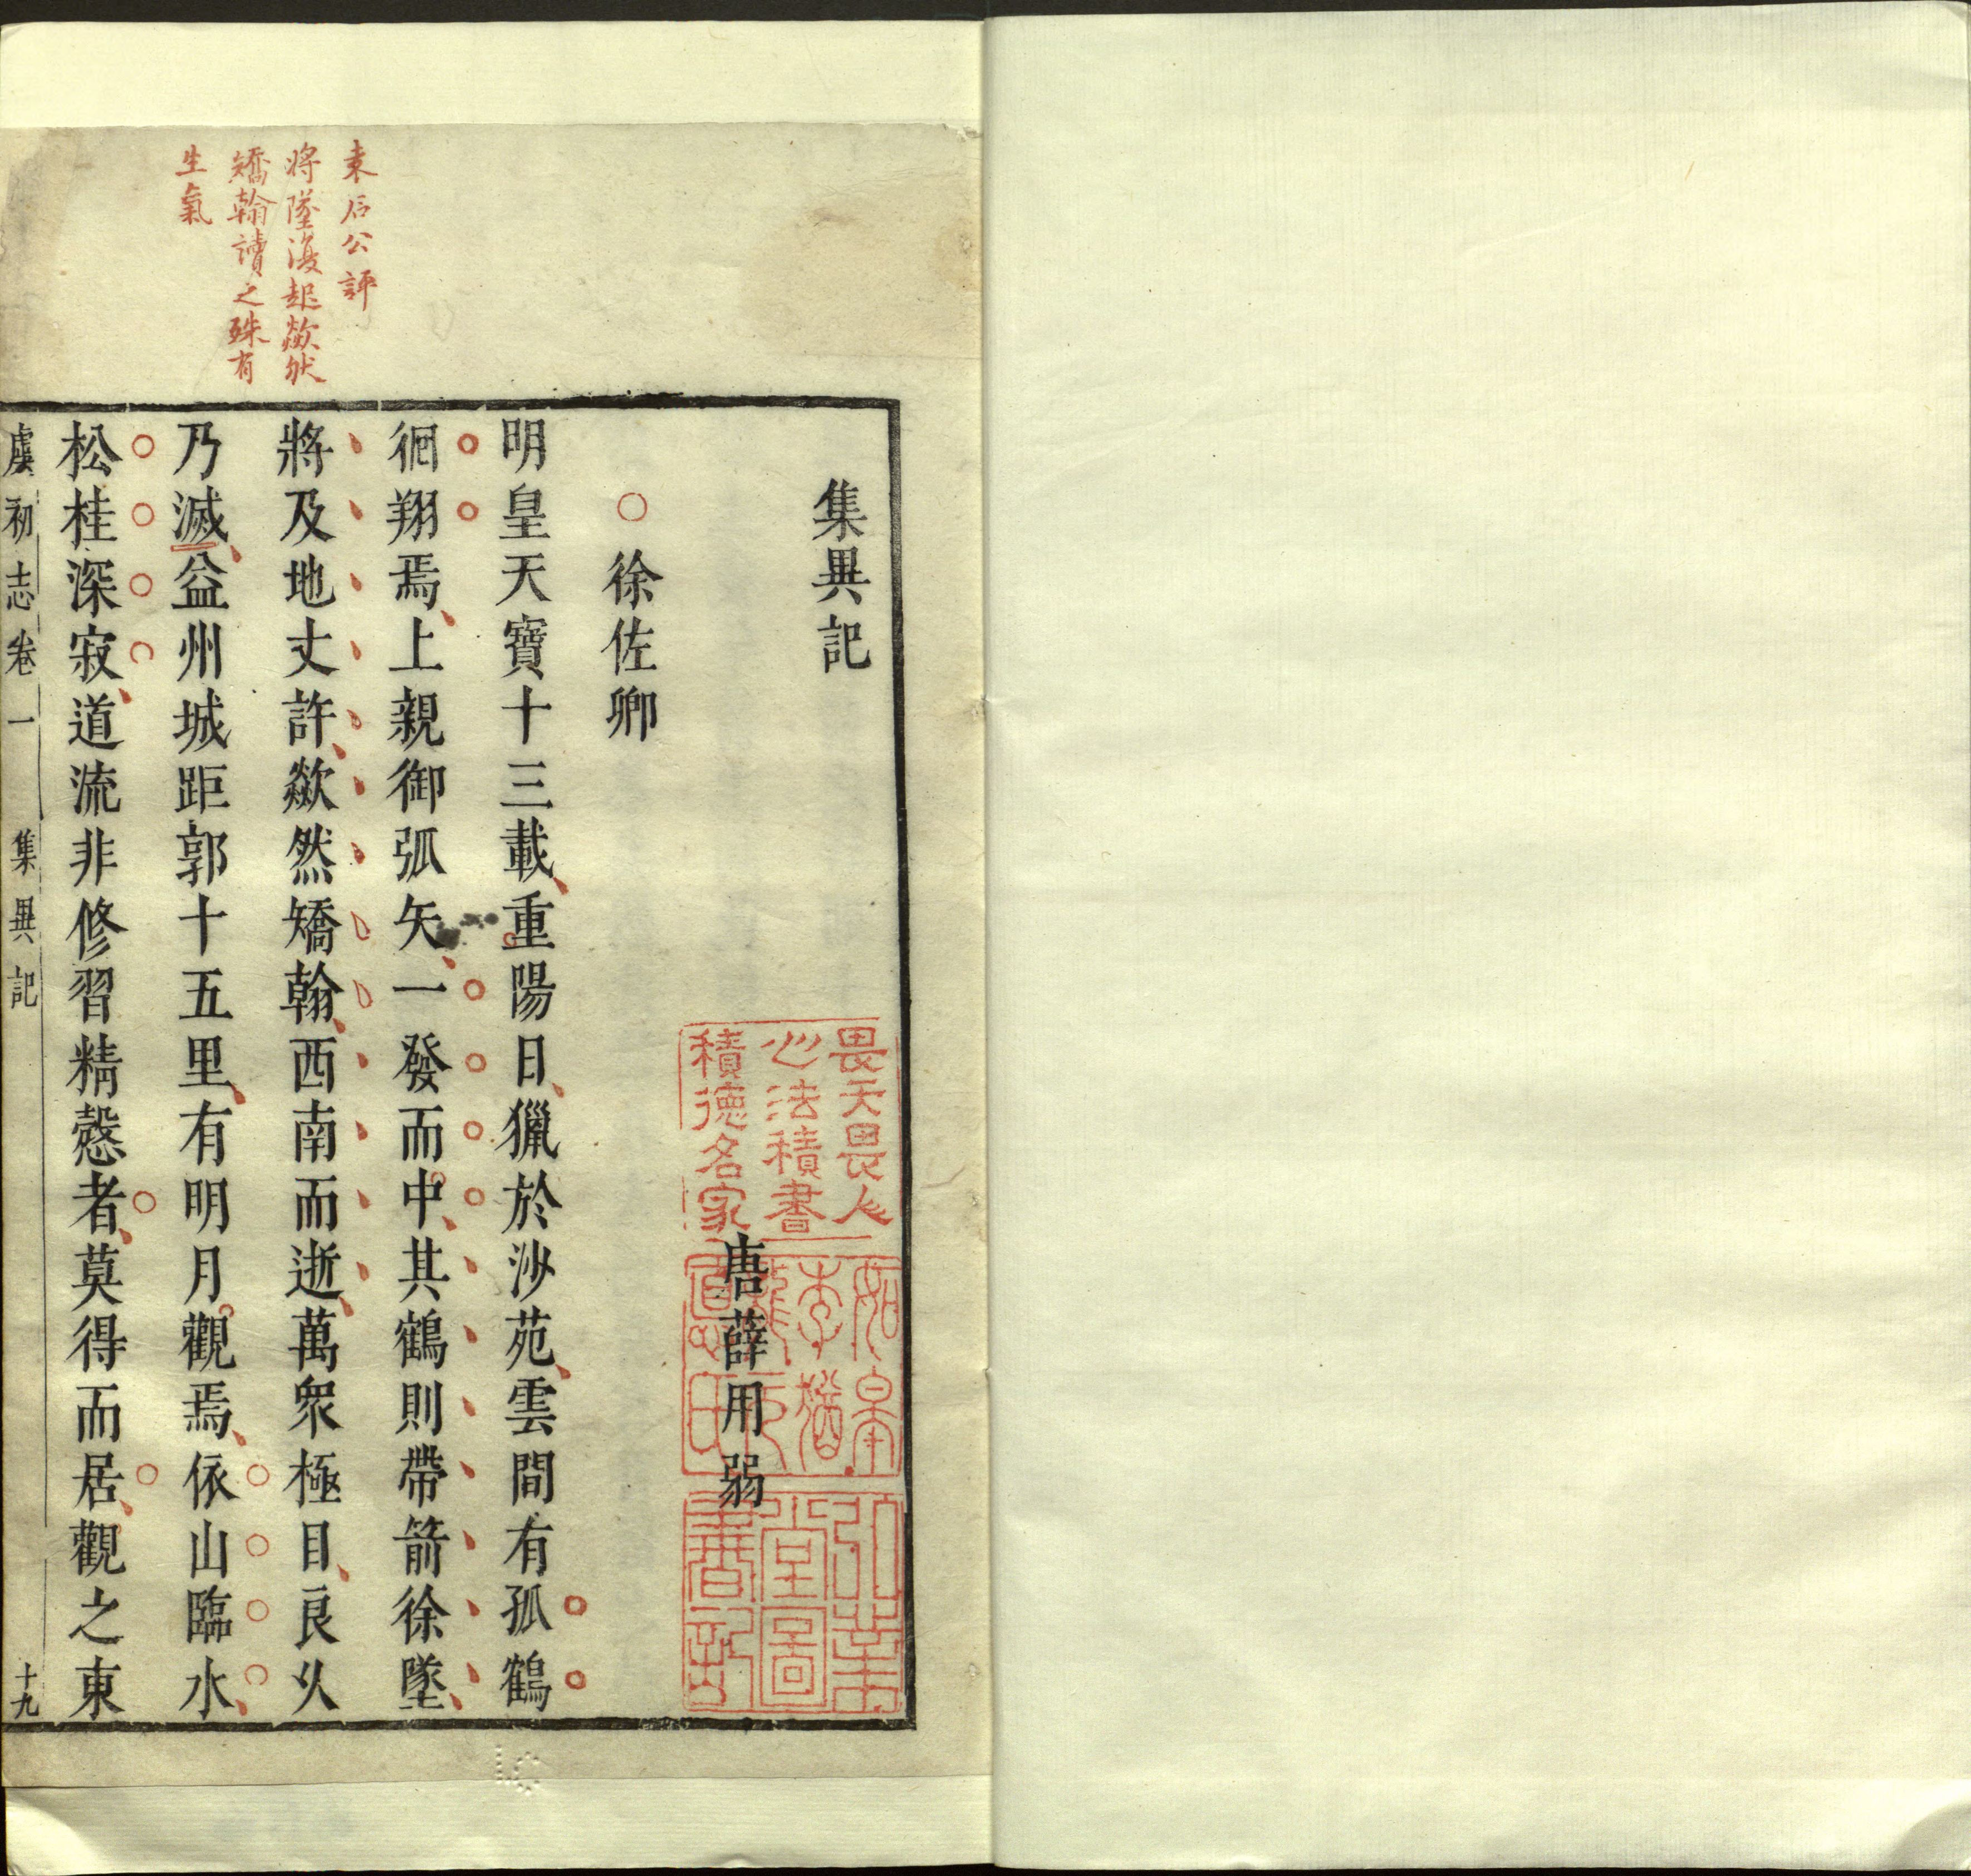 集異記
唐薛用弱
徐佐卿
明皇天寶十三載重陽日獵於沙苑雲間有孤鶴
徊翔焉上親御弧矢一發而中其鶴則帶箭徐墜
將及地丈許歘然矯翰西南而逝萬衆極目良乆
乃滅益州城距郭十五里有明月觀焉依山臨水
松桂深寂道流非修習精慤者莫得而居觀之東
虞初志卷一 集異記 十九
袁石公評
將墜復起歘然
矯翰讀之殊有
生氣
畏天畏人
心法積書
積德名家
堂圖
書記
LC